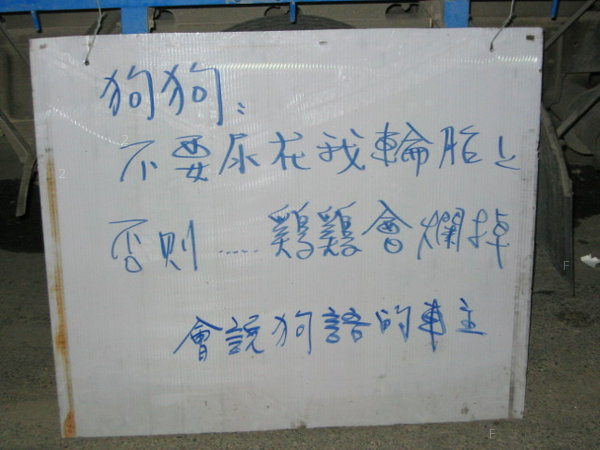 狗狗:
不要尿在我輪胎上
否則……鷄鷄會爛掉
會說狗語的車主